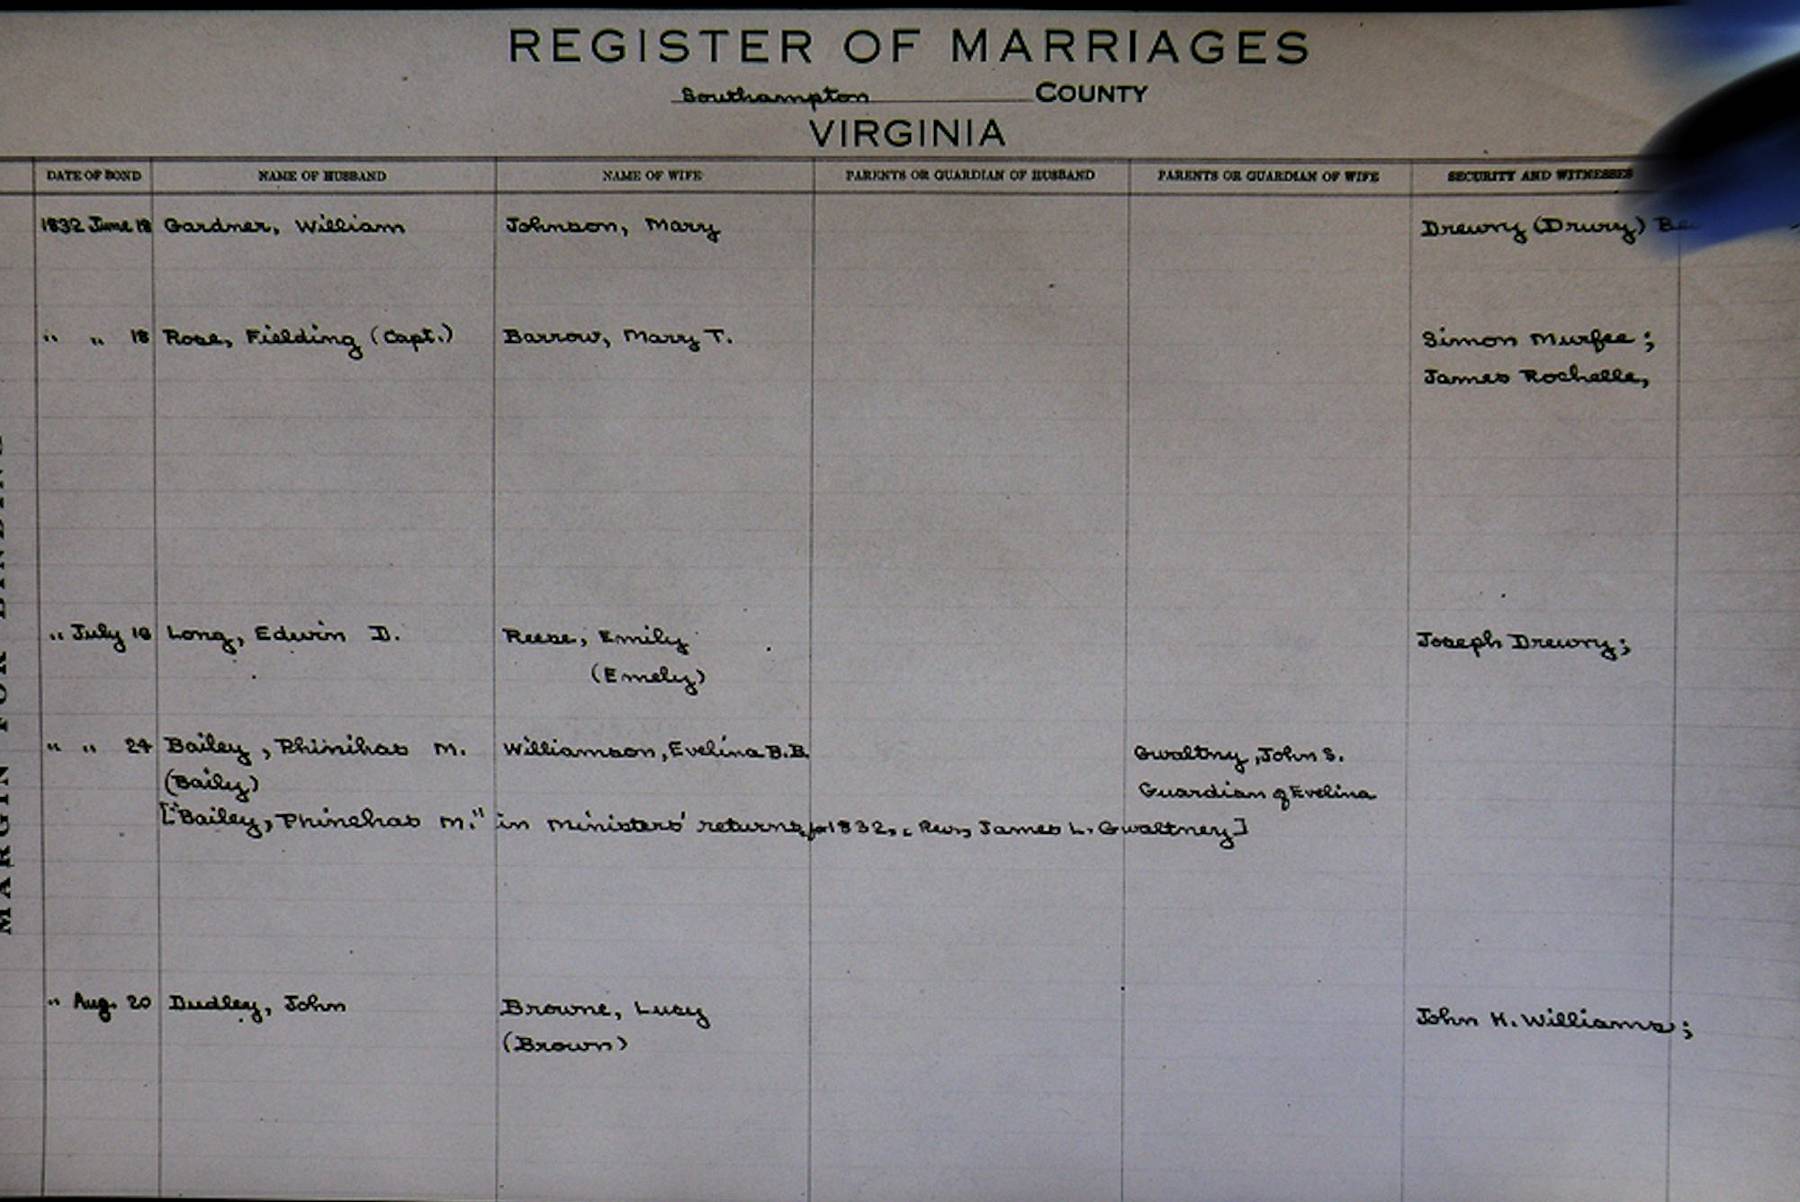 REGISTER OF MARRIAGES
Southampton COUNTY
VIRGINIA
DATE OF BOND NAME OF HUSBAND NAME OF WIFE PARENTS OR GUARDIAN OF HUSBAND PARENTS OR GUARDIAN OF WIFE SECURITY AND WITNESSES
1832 June 18 Gardner, William Johnson, Mary Drewry (Drury)
" " 18 Rose, Fielding (Capt.) Barrow, Mary T. Simon Murfee;
James Rochelle,
" July 16 Long, Edwin D. Reese, Emily Joseph Drewry;
(Emely)
" " 24 Bailey, Phinihas M. Williamson, Evelina B.B. Gwaltny, John S.
(Baily) Guardian of Evelina
["Bailey, Phinehas M." in Ministers' returns for 1832, Rev. James L. Gwaltney]
" Aug. 20 Dudley, John Browne, Lucy John H. Williams;
(Brown)
MARGIN FOR BINDING